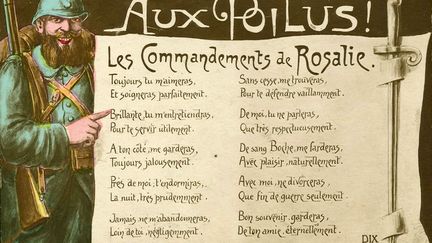 Aux Poilus !
Les Commandements de Rosalie.
Toujours, tu m'aimeras,
Et soigneras parfaitement.
Brillante, tu m'entretiendras,
Pour te servir utilement.
A ton côté, me garderas,
Toujours jalousement.
Près de moi, t'endormiras,
La nuit, très prudemment.
Jamais ne m'abandonneras,
Loin de toi, négligemment.
Sans cesse, me trouveras,
Pour te défendre vaillamment.
De moi, tu ne parleras,
Que très respectueusement.
De sang Boche, me farderas,
Avec plaisir, naturellement.
Avec moi, ne divorceras,
Que fin de guerre seulement.
Bon souvenir garderas,
De ton amie, éternellement.
DIX